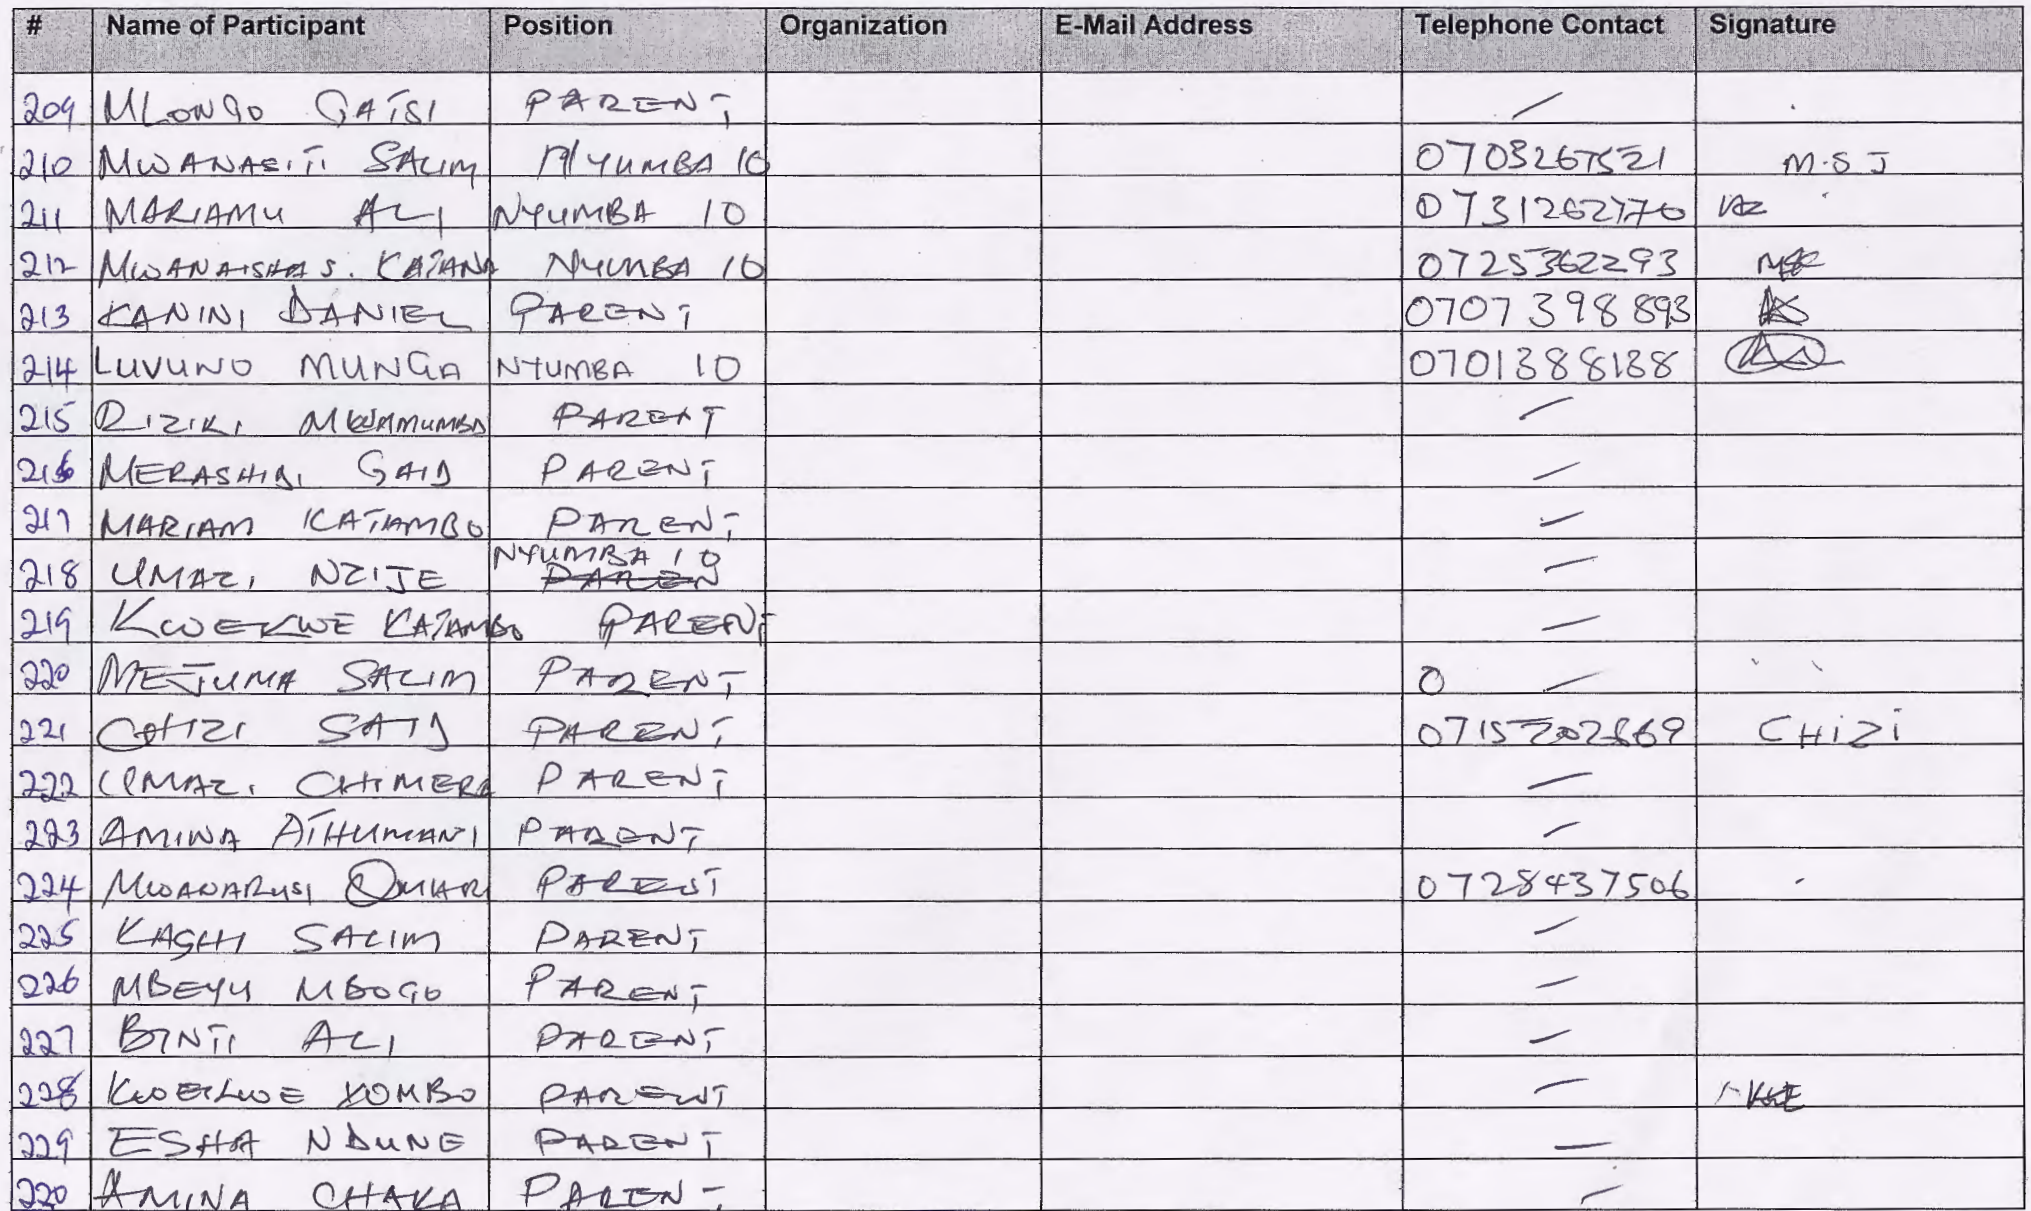 # Name of Participant Position Organization E-Mail Address Telephone Contact Signature
209 MLONGO GATSI PARENT /
210 MWANASITI SALIM NYUMBA 10 0703267521 M.S J
211 MARIAMU ALI NYUMBA 10 0731262770
212 MWANAISHA S. KATANA NYUMBA 10 0725362293
213 KANINI DANIEL PARENT 0707398893
214 LUVUNO MUNGA NYUMBA 10 0701388138
215 RIZIKI MWAMUMBA PARENT /
216 MERASHIDI SAID PARENT /
217 MARIAM KATAMBO PARENT /
218 UMAZI NZIJE NYUMBA 10 PAREN /
219 KWEKWE KATAMBO PARENT /
220 MEJUMA SALIM PARENT 0 /
221 CHIZI SAID PARENT CHIZI
222 UMAZI CHIMERA PARENT /
223 AMINA ATHUMANI PARENT /
224 MWANARUSI OMAR PARENT 0728437506
225 KASHI SALIM PARENT /
226 MBEYU MBOGO PARENT /
227 BINTI ALI PARENT /
228 KWEKWE KOMBO PARENT /
229 ESHA NDUNE PARENT /
220 AMINA CHAKA PARENT /